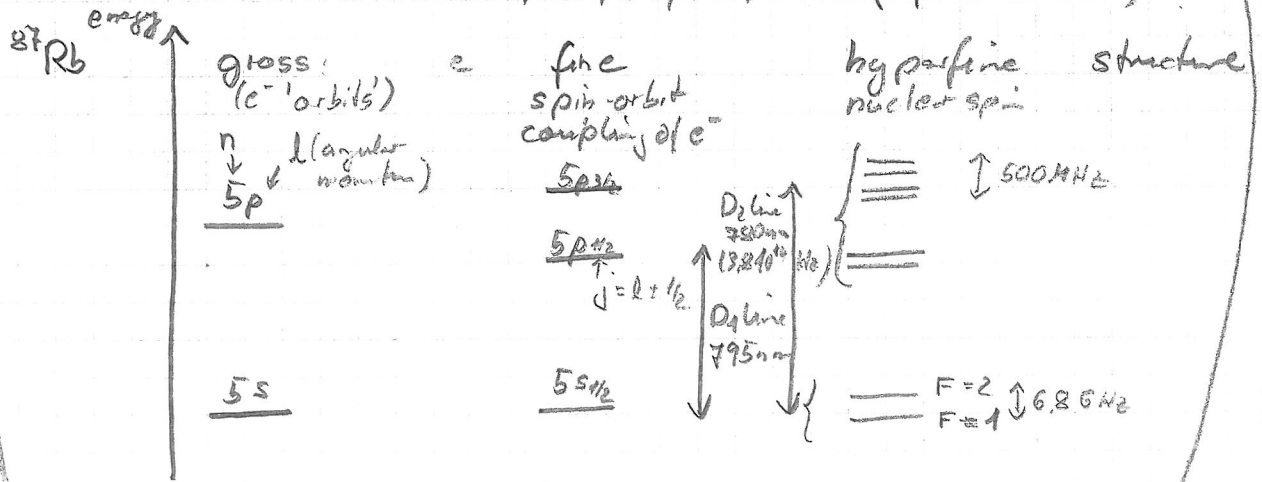 ⁸⁷Rb
energy
gross
(e⁻ 'orbits')
n
l (angular
momentum)
5p
5s
fine
spin-orbit
coupling of e⁻
5p3/2
5p1/2
j = l ± 1/2
5s1/2
D₂ line
780nm
D₁ line
795nm
hyperfine structure
nuclear spin
500 MHz
F = 2
F = 1
6,8 GHz